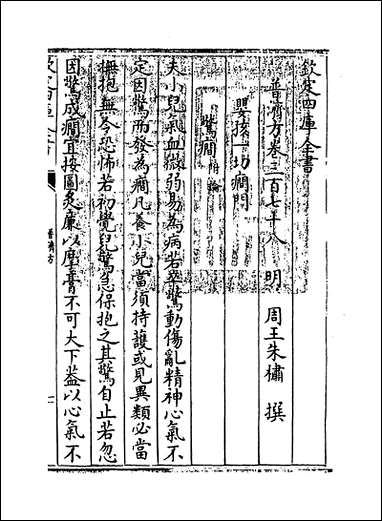 欽定四庫全書
普濟方卷三百七十八　明　周王朱橚　撰
嬰孩一切癇門
驚癇附論
夫小兒氣血微弱易為病若卒驚動傷亂精神心氣不
定因驚而發為癇凡養小兒當須持護或見異類必當
撫抱無令恐怖若初覺兒驚急保抱之其驚自止若忽
因驚成癇宜按圖灸䕠以摩膏不可大下葢以心氣不
普濟方
一